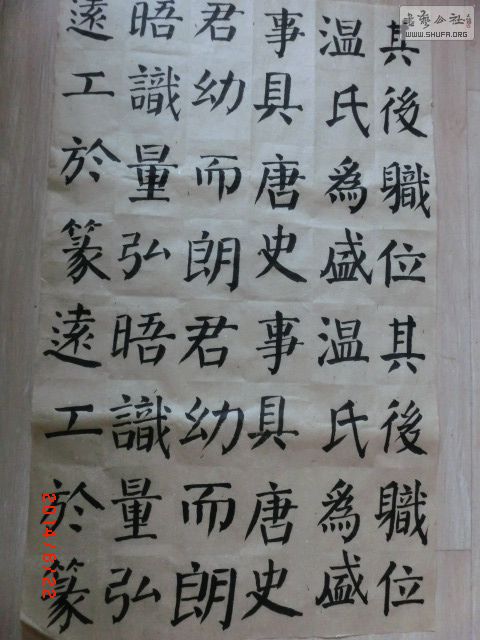 其後職位其後職位
温氏為盛温氏為盛
事具唐史事具唐史
君幼而朗君幼而朗
晤識量弘晤識量弘
遠工於篆遠工於篆
書藝公社
WWW.SHUFA.ORG
2014/6/22